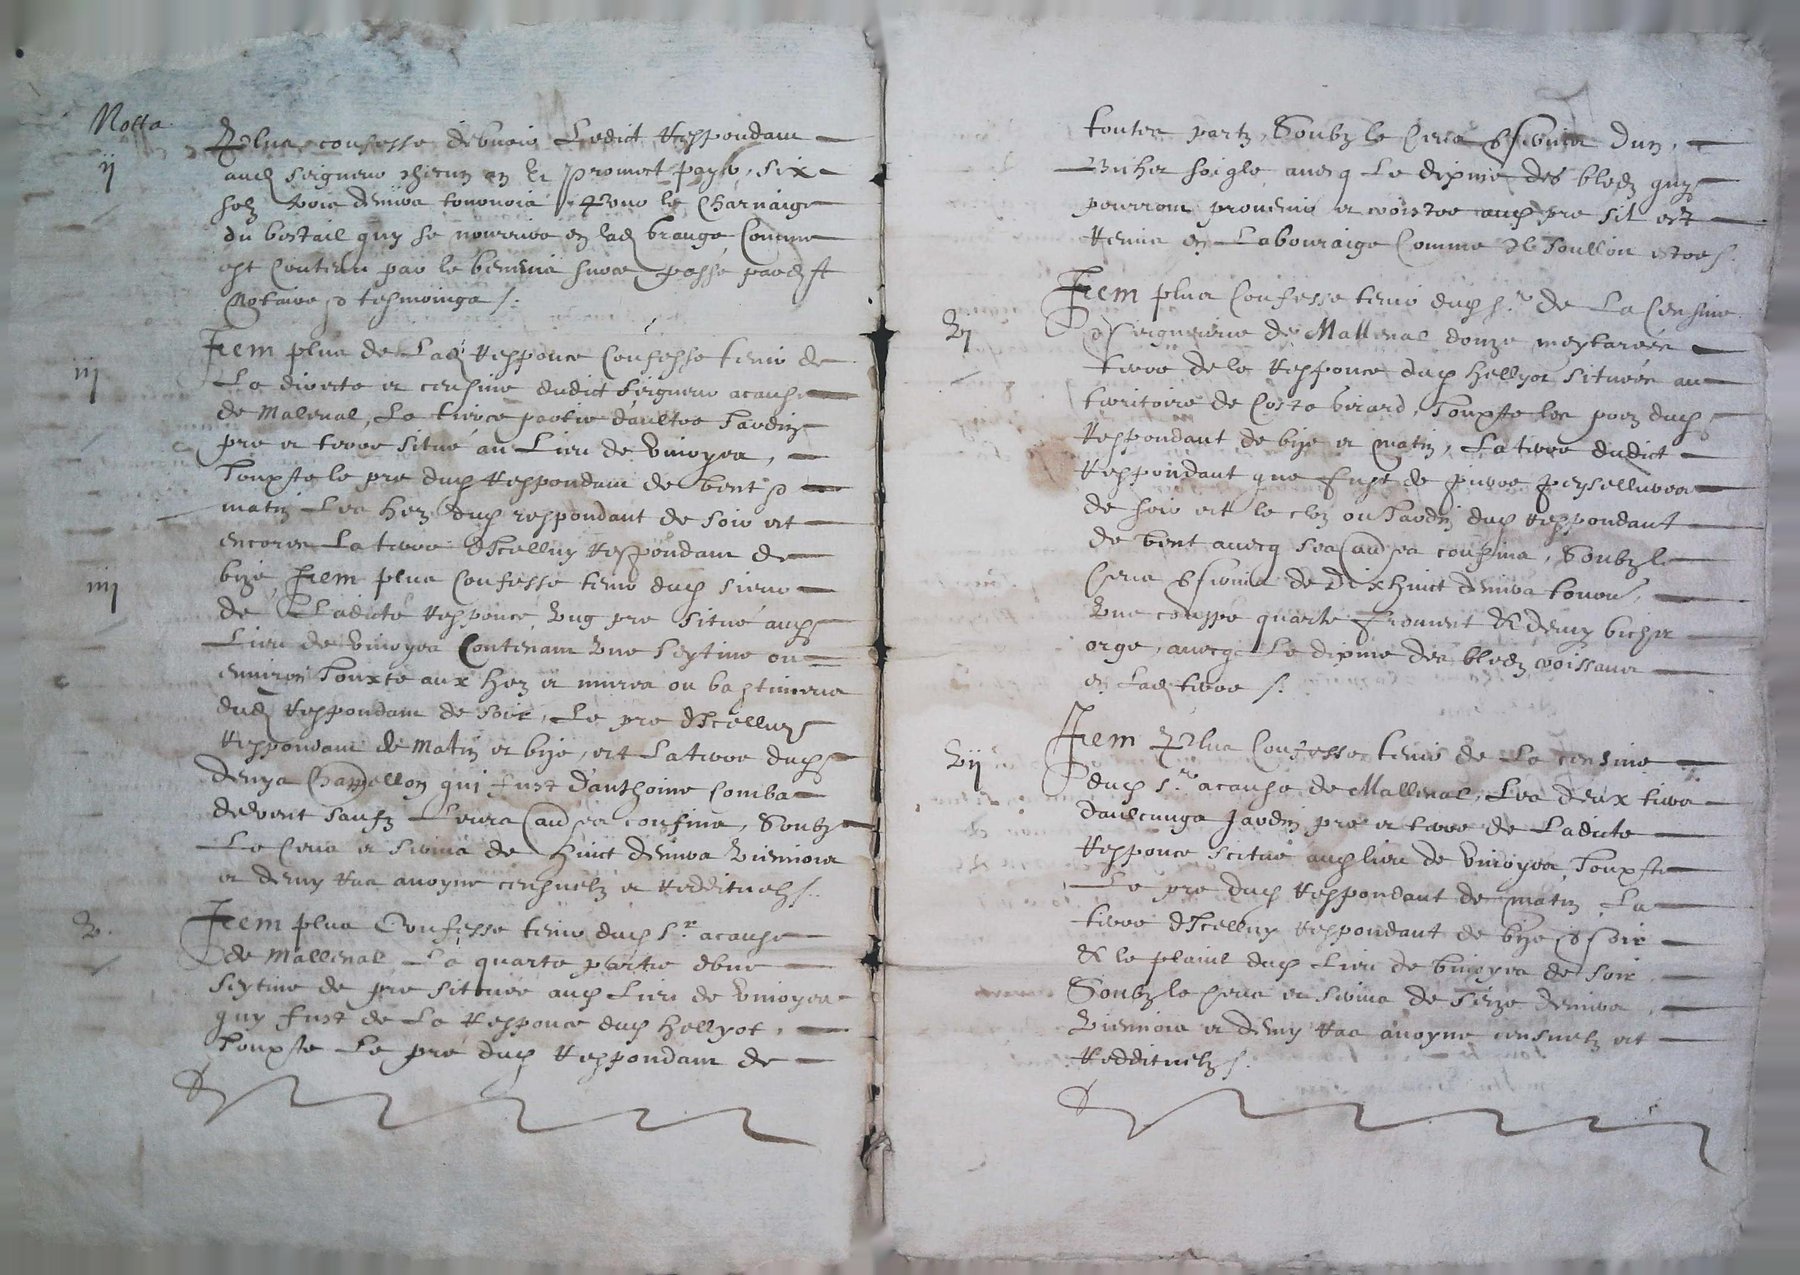 Notta
ij
Plus confesse debvoir Ledict Respondam
aud seigneur chacun an et promect payer, six
solz trois deniers tournois Pour le Charnaige
du bestail quy se nourrira en lad grange Comme
est Contenu par le
Notaire & tesmoings
iij
Item plus de Lad Responce Confesse tenir de
La directe et censive dudict seigneur acause
de Malleval, La tierce partie daultre Jardin
pre et terre situé au Lieu de Vinoyes,
Jouxte le pre dud Respondam de vent &
matin Les hez dud respondant de soir et
encores La terre dIcelluy Respondam de
bize,
iiij
Item plus Confesse tenir dud sieur
de Ladicte Responce, Ung pre situé aud
Lieu de Vinoyes Contenam Une seytine ou
environ Jouxte aux hez et mures ou bastimens
dud Respondam de soir, Le pre dIcelluy
Respondam de Matin et bize, et La terre dud
denys Chappellon qui fust d'anthoine Comba
devent saufz Leurs confins, Soubz
Le Cens et servis de huict deniers Viennois
et demy Ras avoyne censuelz et Reddituelz
V
Item plus Confesse tenir dud Sr acause
de Malleval La quarte partie dune
seytine de pre située aud Lieu de Vinoyes
quy fust de La Responce dud Hellyot,
Jouxte Le pré dud Respondam de
toutes partz, Soubz le Cens & servis dun
Bichet soigle, avecq Le dixme des bledz quy
pourrom provenir et croistre aud pre sil est
Remis en Labouraige Comme
Vj
Item plus Confesse tenir dud Sr de La Censive
& seigneurie de Malleval douze meytarées
terre de la Responce dud Hellyot située au
territoire de Costa berard, Jouxte les prez dud
Respondant de bize et matin, La terre dudict
Respondant que fust de pierre
de soir et le clos ou Jardin dud Respondant
de vent avecq ses confins, Soubz le
Cens & servis de Dix huict deniers tourn,
Une couppe quarte froment & demy bichet
orge, avecq Le dixme des bledz croissans
en Lad terre
Vij
Item Plus Confesse tenir de La censive
dud Sr acause de Malleval, Les deux tiers
daulcungs Jardin pre et terre de Ladicte
Responce scitué aud lieu de Vinoyes, Jouxte
Le pre dud Respondant de matin La
terre dIcelluy Respondant de bize & soir
& le plaint dud Lieu de Vinoyes de soir
Soubz le Cens et servis de seize deniers
Viennois et demy Ras avoyne censuelz et
Reddituelz